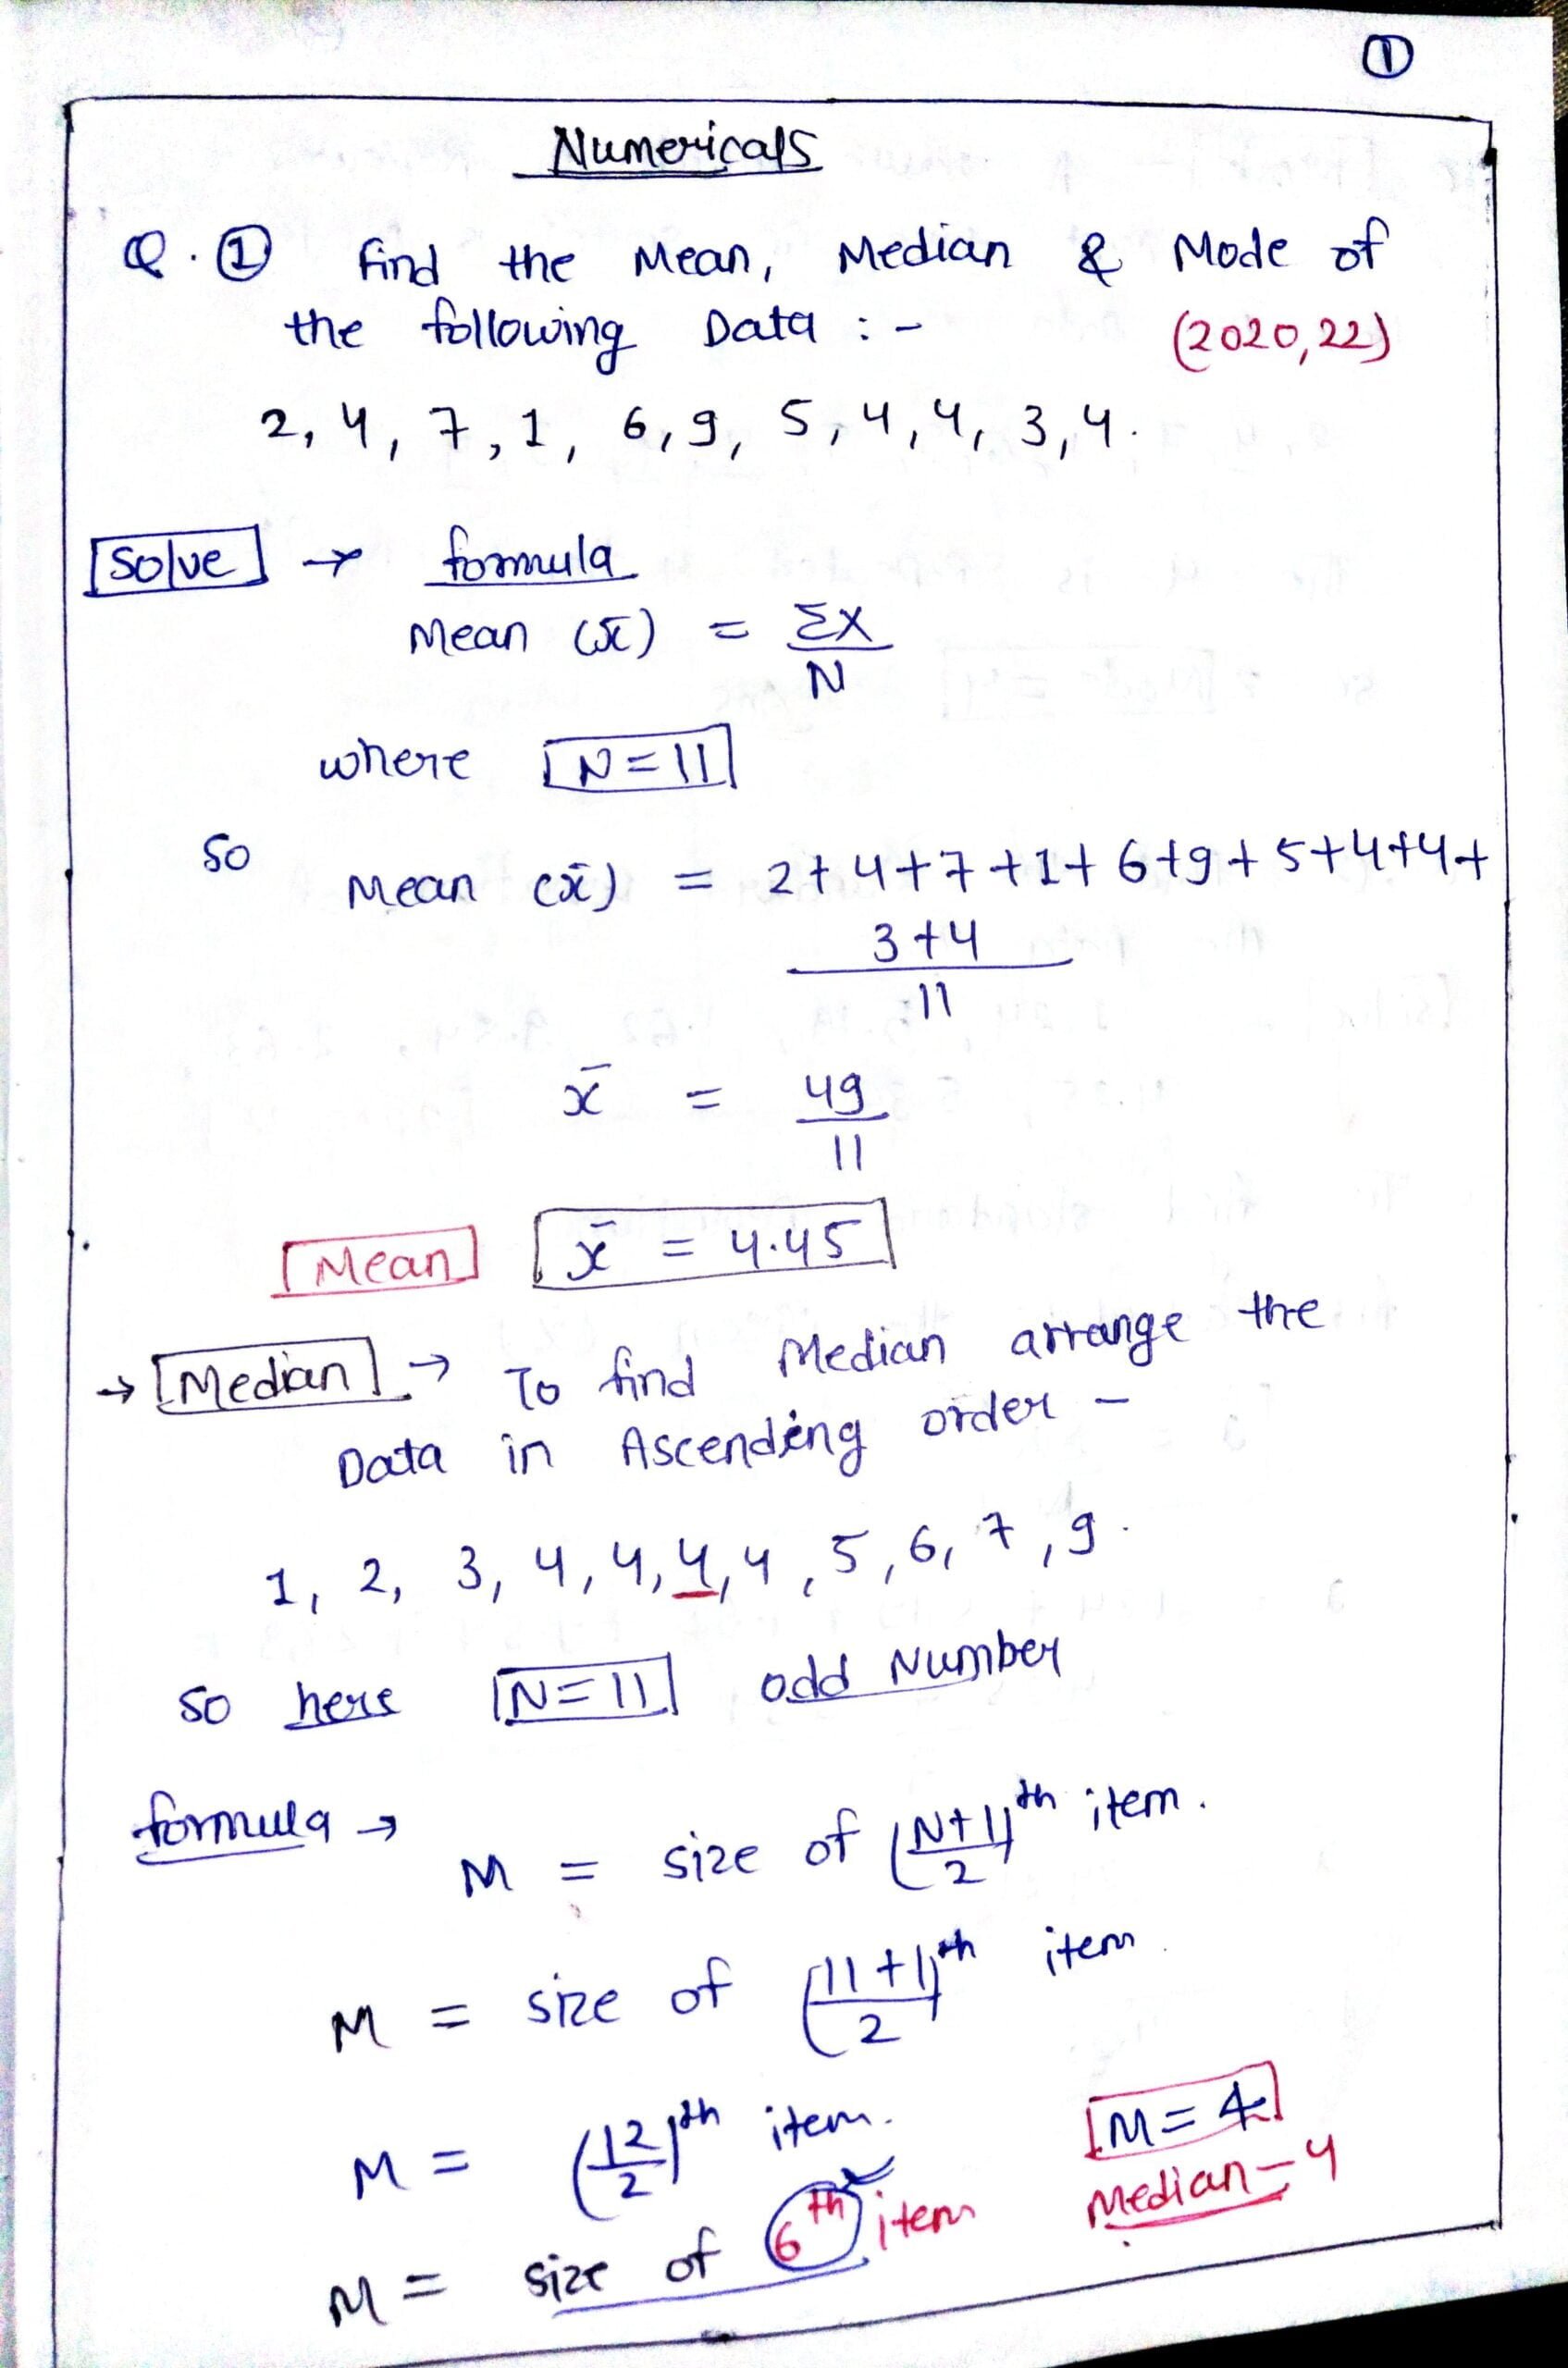 ①
Numericals
Q. ① find the Mean, Median & Mode of
the following Data :-
(2020,22)
2, 4, 7, 1, 6, 9, 5, 4, 4, 3, 4.
Solve → formula
Mean (x̄) = ΣX
N
where N = 11
So Mean (x̄) = 2+4+7+1+6+9+5+4+4+
3+4
11
x̄ = 49
11
Mean x̄ = 4.45
→ Median → To find Median arrange the
Data in Ascending order -
1, 2, 3, 4, 4, 4, 4, 5, 6, 7, 9.
So here N = 11 odd Number
formula → M = size of (N+1/2)th item.
M = size of (11+1/2)th item
M = (12/2)th item.
M = 4
Median - 4
M = size of 6th item